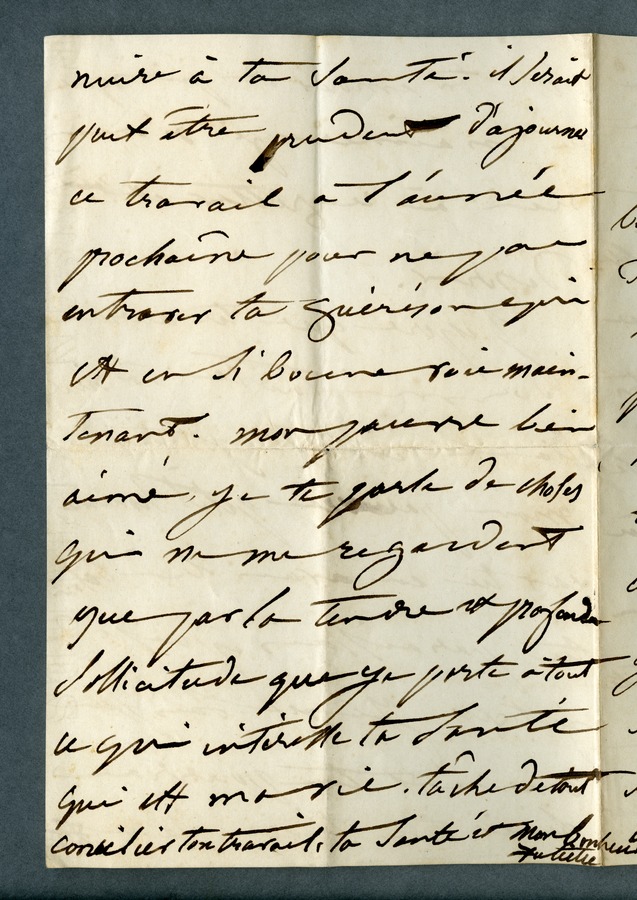 nuire à ta santé. il serait
peut être prudent d'ajourner
ce travail à l'année
prochaîne pour ne pas
entraver ta guérison qui
est en si bonne voie main-
tenant. mon pauvre bien
aimé, je te parle de choses
qui ne me regardent
que par la tendre et profonde
sollicitude que je porte à tout
ce qui intéresse ta santé
qui est ma vie. tâche de tout
concilier ton travail, ta santé et mon bonheur
Juliette